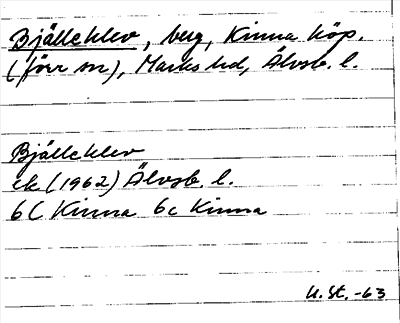 Bjälleklev, berg, Kinna köp.
(förr sn), Marks hd, Älvsb. l.
Bjälleklev
ek (1962) Älvsb. l.
6C Kinna 6c Kinna
U. St. -63